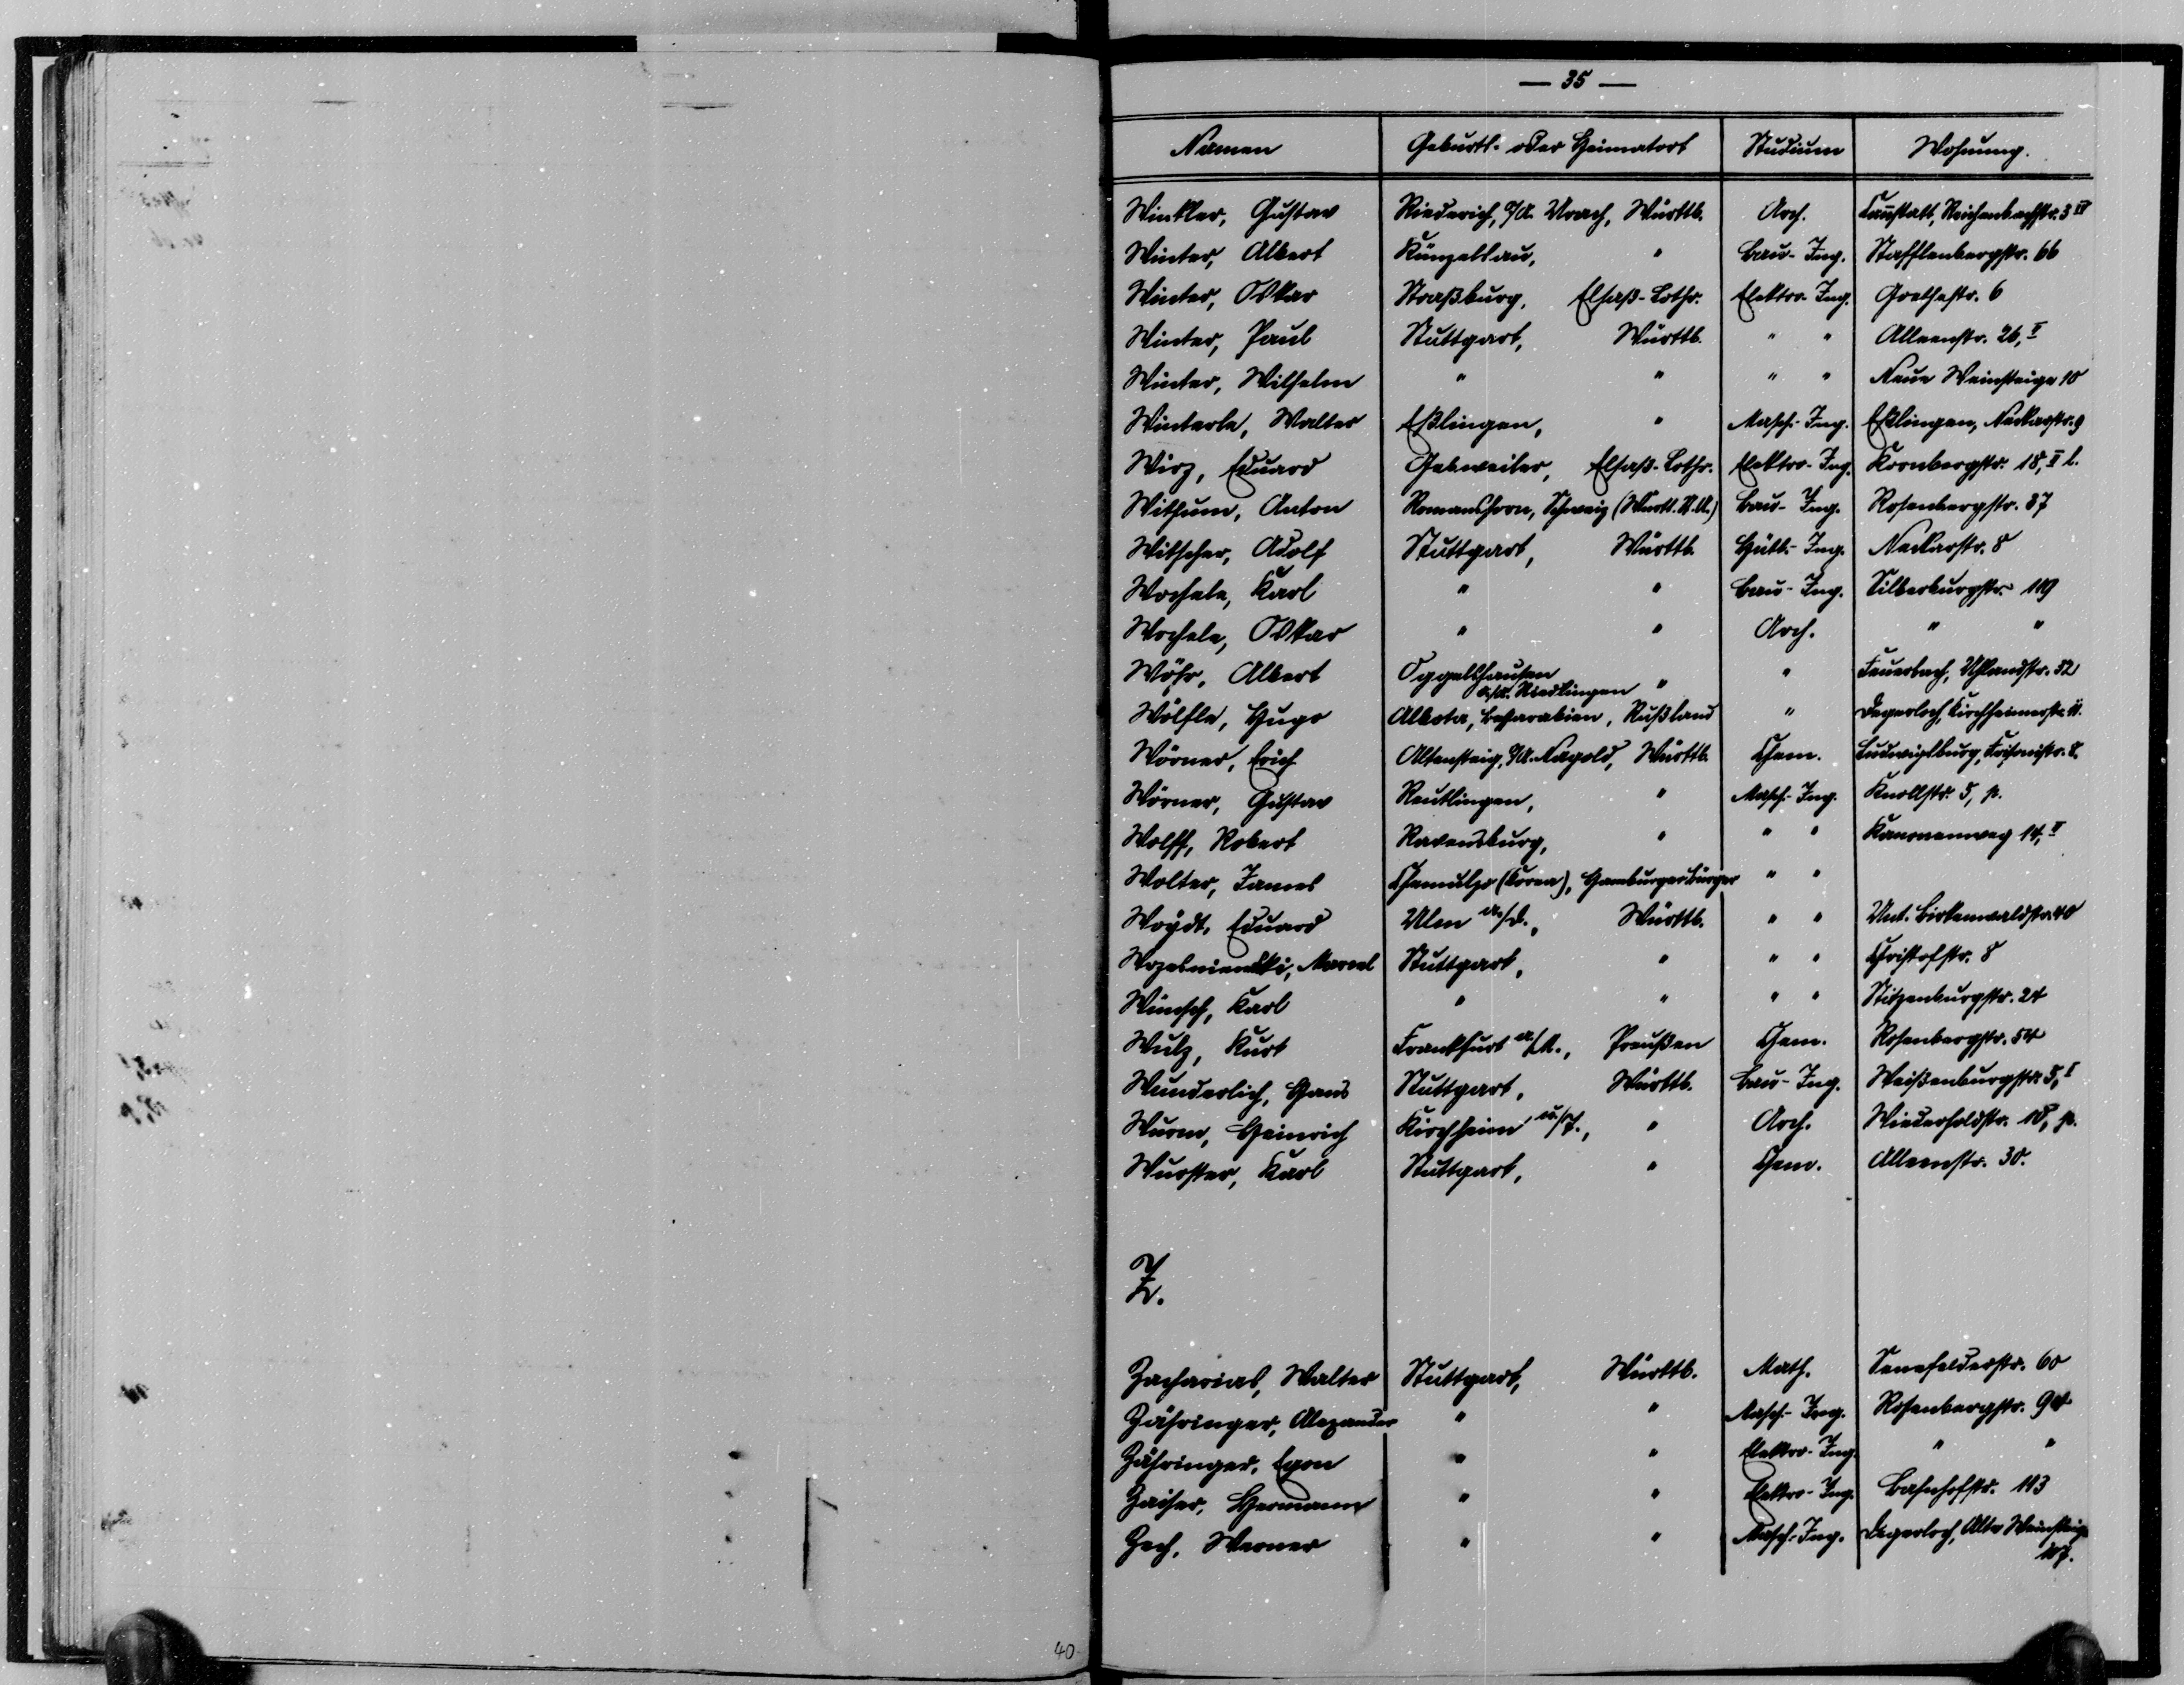 — 35 —
Namen Geburts- oder Heimatort Studium Wohnung.
Winkler, Gustav Riederich, O/A. Urach, Württb. Arch. Cannstatt, Reichenbachstr. 3 IV
Winter, Albert Künzelsau, " Bau-Ing. Stafflenbergstr. 66
Winter, Oskar Straßburg, Elsaß-Lothr. Elektro-Ing. Goethestr. 6
Winter, Paul Stuttgart, Württb. " " Alleenstr. 26, II
Winter, Wilhelm " " " " Neue Weinsteige 10
Winterle, Walter Eßlingen, " Masch.-Ing. Eßlingen, Neckarstr. 9
Wirz, Eduard Gebweiler, Elsaß-Lothr. Elektro-Ing. Kornbergstr. 18, II l.
Withum, Anton Romanshorn, Schweiz (Württ. St. A.) Bau-Ing. Rosenbergstr. 37
Witscher, Adolf Stuttgart, Württb. Hütt.-Ing. Neckarstr. 8
Wochele, Karl " " Bau-Ing. Silberburgstr. 119
Wochele, Oskar " " Arch. " "
Wöhr, Albert Oggelshausen " " Feuerbach, Uhlandstr. 52
O/A. Riedlingen
Wölfle, Hugo Albota, Bessarabien, Rußland " Degerloch, Kirchheimerstr. 11.
Wörner, Erich Altensteig, O/A. Nagold, Württb. Chem. Ludwigsburg, Frisonistr. 8.
Wörner, Gustav Reutlingen, " Masch.-Ing. Knollstr. 5, p.
Wolff, Robert Ravensburg, " " " Kanonenweg 14, II
Wolter, James Chemulpo (Korea), Hamburgerbürger " "
Woydt, Eduard Ulm a/D., Württb. " " Unt. Birkenwaldstr. 40
Marcel Stuttgart, " " " Christofstr. 8
Wünsch, Karl " " " " Stitzenburgstr. 24
Wulz, Kurt Frankfurt a/M., Preußen Chem. Rosenbergstr. 54
Wunderlich, Hans Stuttgart, Württb. Bau-Ing. Weißenburgstr. 5, I
Wurm, Heinrich Kirchheim u/T., " Arch. Wiederholdstr. 10, p.
Wurster, Karl Stuttgart, " Chem. Alleenstr. 30.
Z.
Zacharias, Walter Stuttgart, Württb. Math. Senefelderstr. 60
Zähringer, Alexander " " Masch.-Ing. Rosenbergstr. 94
Zähringer, Egon " " Elektro-Ing. " "
Zaiser, Hermann " " Elektro-Ing. Bahnhofstr. 113
Zech, Werner " " Masch.-Ing. Degerloch, Alte Weinsteige
107.
40